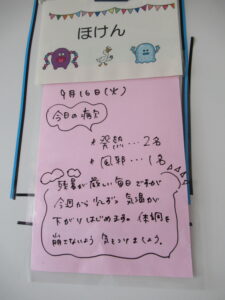 ほけん
9月16日(火)
今日の病欠
発熱…2名
風邪…1名
残暑が厳しい毎日ですが
今週から少しずつ気温が
下がりはじめます。体調を
崩さないよう気をつけましょう。